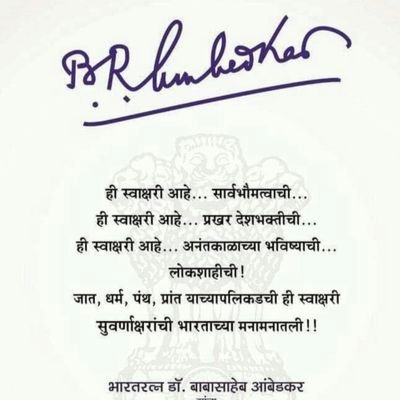 B.R. Ambedkar
ही स्वाक्षरी आहे... सार्वभौमत्वाची...
ही स्वाक्षरी आहे... प्रखर देशभक्तीची...
ही स्वाक्षरी आहे... अनंतकाळाच्या भविष्याची...
लोकशाहीची!
जात, धर्म, पंथ, प्रांत याच्यापलिकडची ही स्वाक्षरी
सुवर्णाक्षरांची भारताच्या मनामनातली!!
भारतरत्न डॉ. बाबासाहेब आंबेडकर